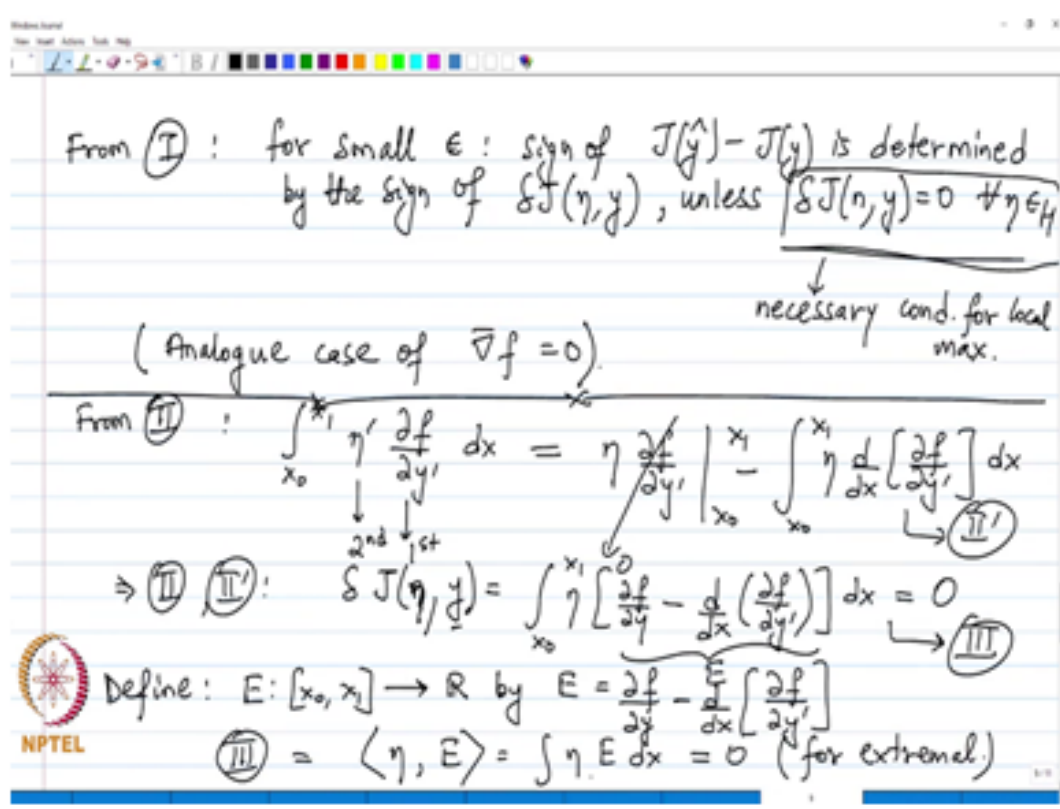 Windows Journal
View Insert Actions Tools Help
From (I) : for small ϵ : sign of J(ŷ) - J(y) is determined
by the sign of δJ(η, y), unless δJ(η, y) = 0 ∀ η ∈ H
↓
necessary cond. for local
max.
(Analogue case of ∇̄f = 0).
From (II) : ∫_{x₀}^{x₁} η' ∂f/∂y' dx = η ∂f/∂y' |_{x₀}^{x₁} - ∫_{x₀}^{x₁} η d/dx [∂f/∂y'] dx
2nd 1st 0 → (II')
⇒ (II), (II') : δJ(η, y) = ∫_{x₀}^{x₁} η [∂f/∂y - d/dx (∂f/∂y')] dx = 0
→ (III)
E
Define : E : [x₀, x₁] → ℝ by E = ∂f/∂y - d/dx [∂f/∂y']
(III) = ⟨η, E⟩ = ∫ η. E dx = 0 (for extremal.)
NPTEL